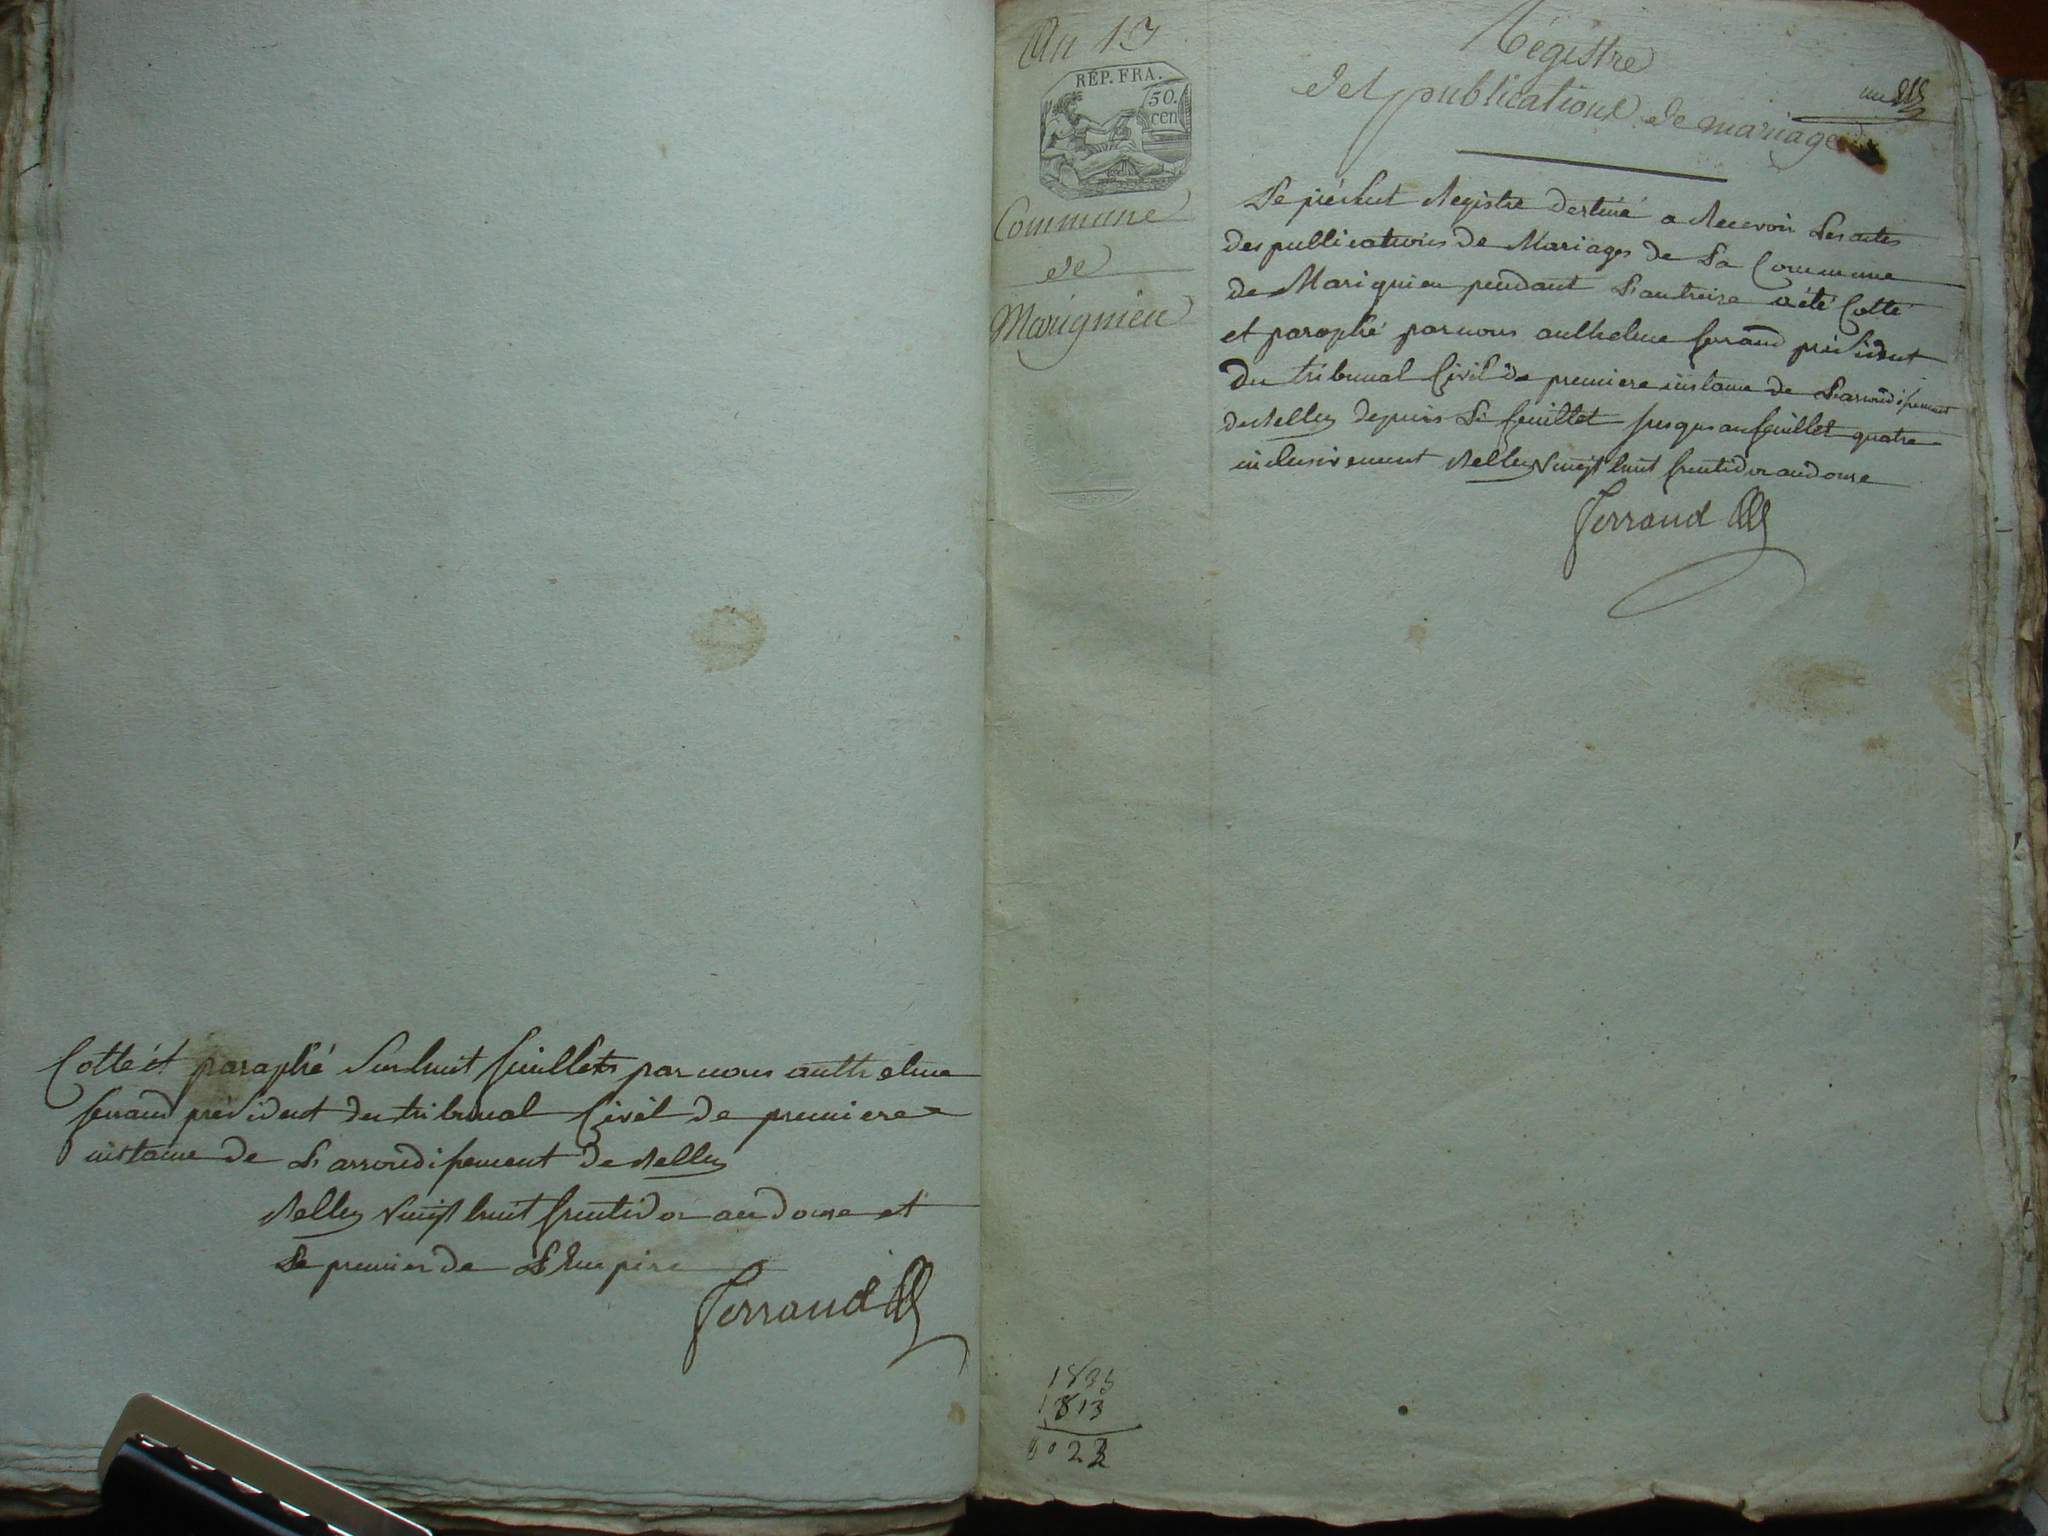 Cotté et paraphé Sur huit feuillets par nous anthelme
ferrand président du tribunal Civil de premiere
instance de L'arrondissement de Belley
Belley vingt huit fructidor an douse et
Le premier de L'Empire
Ferrand
An 13
RÉP. FRA.
50.
cen
Commune
de
Marignieu
Régistre
des publications de mariage
un
Le présent Registre destiné a Recevoir Les actes
des publications de Mariages de La Commune
de Marignieu pendant L'an treise a été Cotté
et paraphé par nous anthelme ferrand président
du tribunal Civil de premiere instance de L'arrondissement
de Belley depuis Le feuillet jusques au feuillet quatre
inclusivement Belley vingt huit fructidor an douse
Ferrand
1835
1813
022